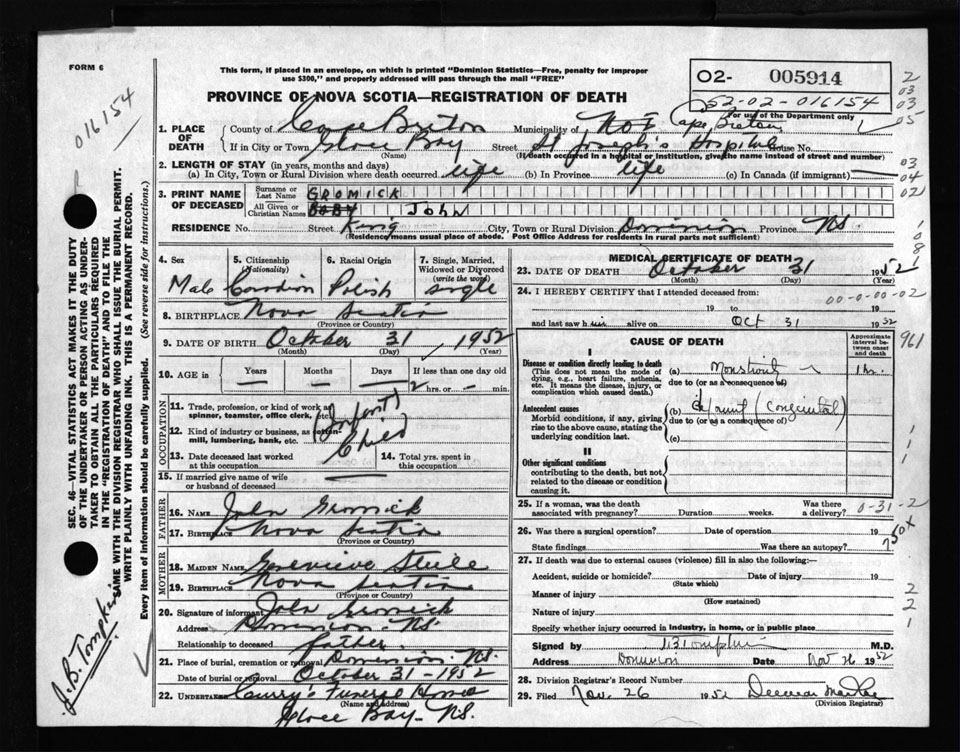 FORM 6
This form, if placed in an envelope, on which is printed "Dominion Statistics—Free, penalty for improper
use $300," and properly addressed will pass through the mail "FREE"
02- 005914
52-02-016154
For use of the Department only
016154
PROVINCE OF NOVA SCOTIA—REGISTRATION OF DEATH
1. PLACE OF DEATH
County of Cape Breton Municipality of No I Cape Breton
If in City or Town Glace Bay Street St Joseph's Hospital House No.
(Name) (If death occurred in a hospital or institution, give the name instead of street and number)
2. LENGTH OF STAY (in years, months and days)
(a) In City, Town or Rural Division where death occurred life (b) In Province life (c) In Canada (if immigrant)
3. PRINT NAME OF DECEASED
Surname or Last Name GROMICK
All Given or Christian Names BABY John
RESIDENCE No. Street King City, Town or Rural Division Dominion Province NS
(Residence means usual place of abode. Post Office Address for residents in rural parts not sufficient)
4. Sex Male
5. Citizenship (Nationality) Canadian
6. Racial Origin Polish
7. Single, Married, Widowed or Divorced (write the word) single
8. BIRTHPLACE Nova Scotia
(Province or Country)
9. DATE OF BIRTH October 31 1952
(Month) (Day) (Year)
10. AGE in Years Months Days If less than one day old
2 hrs. or — min.
OCCUPATION
11. Trade, profession, or kind of work as spinner, teamster, office clerk, etc. (Infant)
12. Kind of industry or business, as cotton-mill, lumbering, bank, etc. Child
13. Date deceased last worked at this occupation
14. Total yrs. spent in this occupation
15. If married give name of wife or husband of deceased
FATHER
16. NAME John Gromick
17. BIRTHPLACE Nova Scotia
(Province or Country)
MOTHER
18. MAIDEN NAME Genevieve Steele
19. BIRTHPLACE Nova Scotia
(Province or Country)
20. Signature of informant John Gromick
Address Dominion NS.
Relationship to deceased father
21. Place of burial, cremation or removal Dominion NS.
Date of burial or removal October 31-1952
22. UNDERTAKER Curry's Funeral Home
(Name and Address)
Glace Bay - NS.
MEDICAL CERTIFICATE OF DEATH
23. DATE OF DEATH October 31 1952
(Month) (Day) (Year)
24. I HEREBY CERTIFY that I attended deceased from:
00-0-00-02
19 to 19
and last saw him alive on Oct 31 1952
CAUSE OF DEATH
Approximate interval between onset and death
961
I
Disease or condition directly leading to death
(This does not mean the mode of dying, e.g., heart failure, asthenia, etc. It means the disease, injury, or complication which caused death.)
(a) 1 hr.
due to (or as a consequence of)
Antecedent causes
Morbid conditions, if any, giving rise to the above cause, stating the underlying condition last.
(b) (Congenital)
due to (or as a consequence of)
(c)
II
Other significant conditions
contributing to the death, but not related to the disease or condition causing it.
25. If a woman, was the death associated with pregnancy? Duration weeks. Was there a delivery? 0-31-2
26. Was there a surgical operation? Date of operation 19
State findings Was there an autopsy? 750X
27. If death was due to external causes (violence) fill in also the following:—
Accident, suicide or homicide? Date of injury 19
(State which)
Manner of injury
(How sustained)
Nature of injury
Specify whether injury occurred in industry, in home, or in public place
Signed by JB Tompkins M.D.
Address Dominion Date Nov 26 1952
28. Division Registrar's Record Number
29. Filed Nov. 26 1952
(Division Registrar)
SEC. 46—VITAL STATISTICS ACT MAKES IT THE DUTY
OF THE UNDERTAKER OR PERSON ACTING AS UNDER-
TAKER TO OBTAIN ALL THE PARTICULARS REQUIRED
IN THE "REGISTRATION OF DEATH" AND TO FILE THE
SAME WITH THE DIVISION REGISTRAR WHO SHALL ISSUE THE BURIAL PERMIT.
WRITE PLAINLY WITH UNFADING INK. THIS IS A PERMANENT RECORD.
Every item of information should be carefully supplied. (See reverse side for instructions.)
J.B. Tompkins